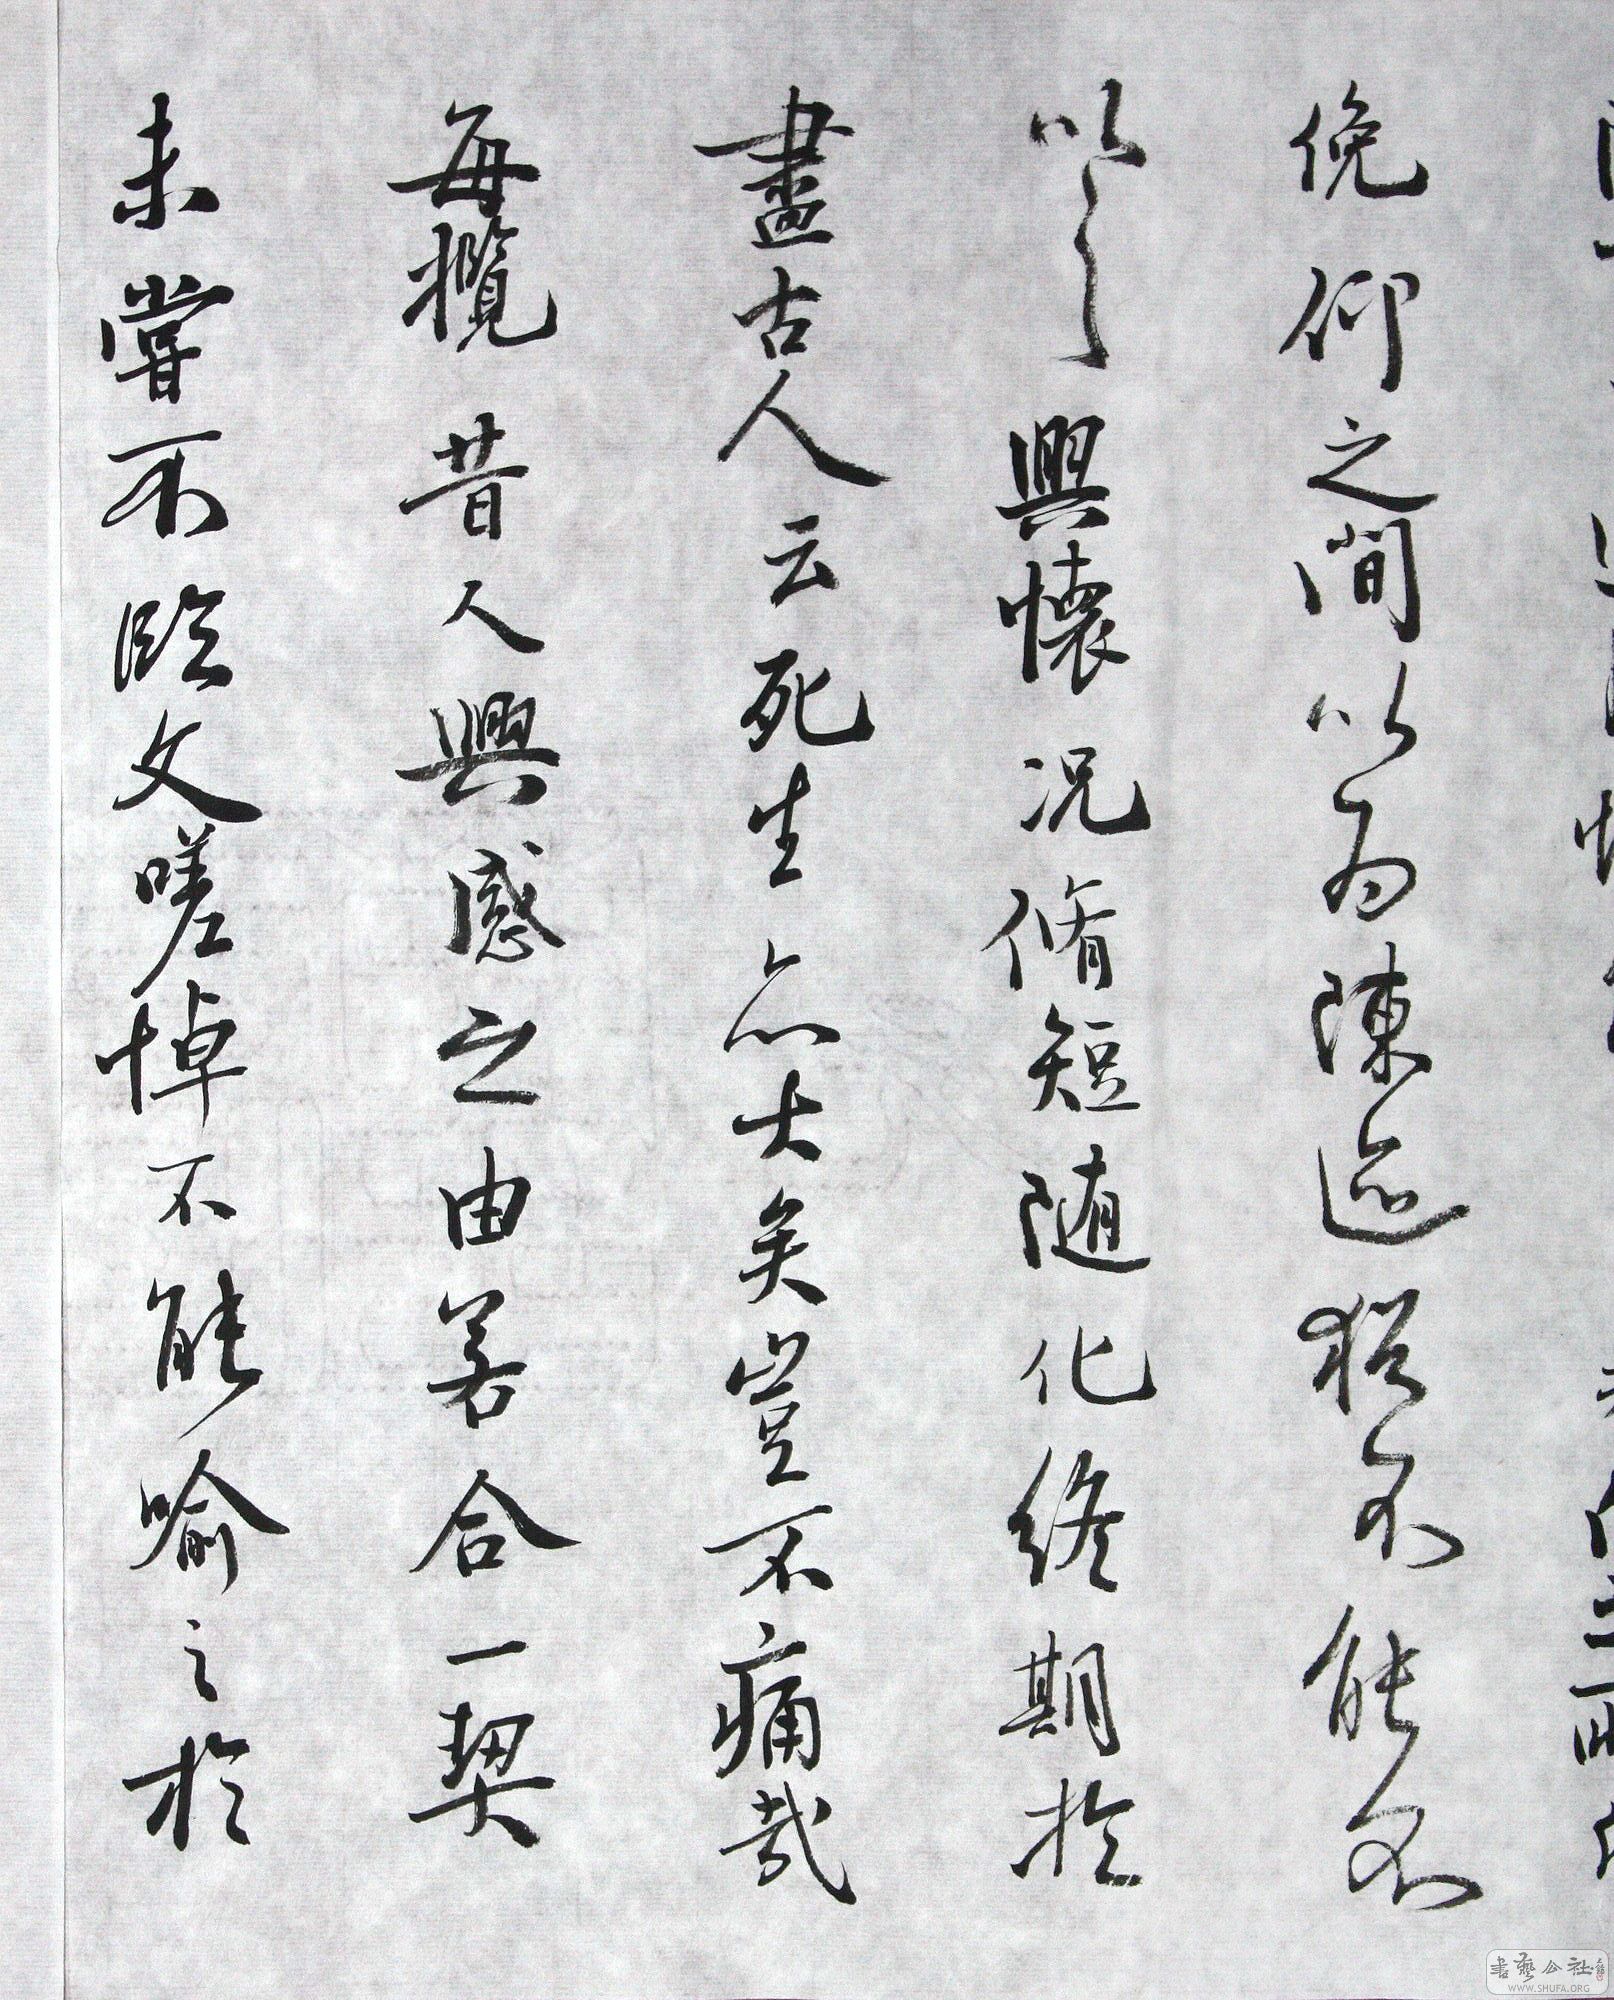 俛仰之閒以為陳迹猶不能不
以之興懷况脩短随化終期於
盡古人云死生亦大矣豈不痛哉
每攬昔人興感之由若合一契
未嘗不臨文嗟悼不能喻之於
書藝公社
WWW.SHUFA.ORG